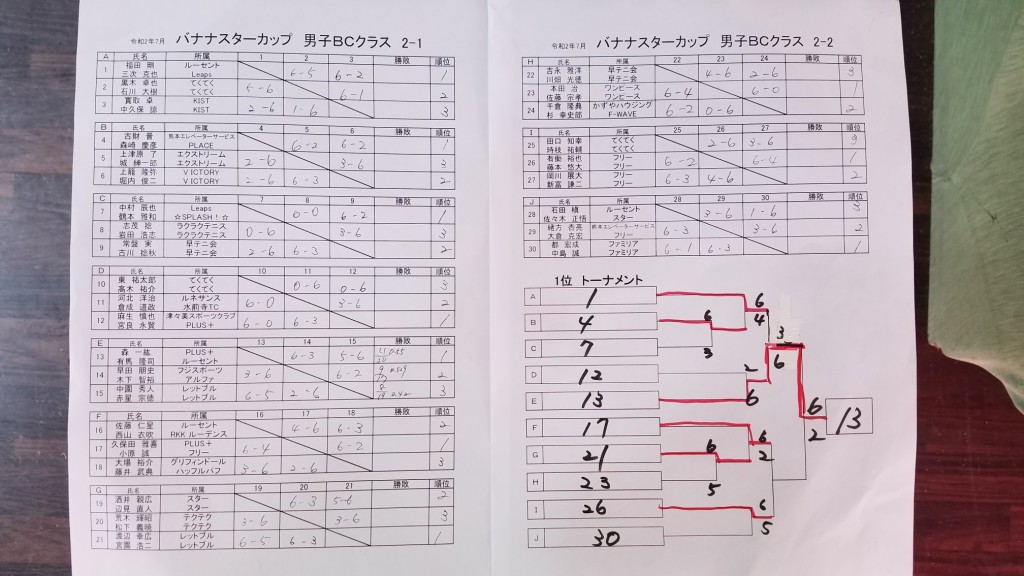 令和2年7月 バナナスターカップ 男子BCクラス 2-1
A 氏名 所属 1 2 3 勝敗 順位
1 福田 剛 ルーセント 6-5 6-2 1
三次 克也 Leaps
2 黒木 卓也 てくてく 5-6 6-1 2
石川 大樹 てくてく
3 貫取 卓 KIST 2-6 1-6 3
中久保 諒 KIST
B 氏名 所属 4 5 6 勝敗 順位
4 古財 晋 熊本エレベーターサービス 6-2 6-2 1
森崎 慶彦 PLACE
5 上津原 了 エクストリーム 2-6 3-6 3
城 紳一郎 エクストリーム
6 上籠 隆弥 V ICTORY 2-6 6-3 2
堀内 俊二 V ICTORY
C 氏名 所属 7 8 9 勝敗 順位
7 中村 辰也 Leaps 6-0 6-2 1
鶴本 雅和 ☆SPLASH！☆
8 志茂 稔 ラクラクテニス 0-6 3-6 3
岩田 浩志 ラクラクテニス
9 常盤 実 早テニ会 2-6 6-3 2
古川 稔秋 早テニ会
D 氏名 所属 10 11 12 勝敗 順位
10 東 祐太郎 てくてく 0-6 0-6 3
高木 祐介 てくてく
11 河北 洋治 ルネサンス 6-0 3-6 2
倉成 道政 水前寺TC
12 麻生 慎也 津々美スポーツクラブ 6-0 6-3 1
宮良 永賢 PLUS+
E 氏名 所属 13 14 15 勝敗 順位
13 森 一紘 PLUS+ 6-3 5-6 1
有馬 隆司 ルーセント
14 早田 朋史 フジスポーツ 3-6 6-2 2
木下 智裕 アルファ
15 中園 秀人 レットブル 6-5 2-6 3
赤星 宗徳 レットブル
F 氏名 所属 16 17 18 勝敗 順位
16 佐藤 仁星 ルーセント 4-6 6-3 2
西山 衣吹 RKK ルーデンス
17 久保田 雅喜 PLUS+ 6-4 6-2 1
小原 誠 フリー
18 大場 裕介 グリフィンドール 3-6 2-6 3
藤井 武典 ハッフルパフ
G 氏名 所属 19 20 21 勝敗 順位
19 酒井 親広 スター 6-3 5-6 2
辺見 直人 スター
20 荒木 輝昭 テクテク 3-6 3-6 3
松下 義暁 テクテク
21 渡辺 幸広 レットブル 6-5 6-3 1
宮園 浩二 レットブル
令和2年7月 バナナスターカップ 男子BCクラス 2-2
H 氏名 所属 22 23 24 勝敗 順位
22 吉永 雅洋 早テニ会 4-6 2-6 3
川畑 光徳 早テニ会
23 本田 治 ワンピース 6-4 6-0 1
佐藤 宗孝 ワンピース
24 千倉 隆典 かずやハウジング 6-2 0-6 2
杉 幸史郎 F-WAVE
I 氏名 所属 25 26 27 勝敗 順位
25 田口 知幸 てくてく 2-6 3-6
持枝 祐輔 てくてく
26 有働 裕也 フリー 6-2 6-4 1
藤本 悠大 フリー
27 岡川 展大 フリー 6-3 4-6 2
新富 謙二 フリー
J 氏名 所属 28 29 30 勝敗 順位
28 石田 槙 ルーセント 3-6 1-6 3
佐々木 正悟 スター
29 緒方 杏亮 熊本エレベーターサービス 6-3 3-6 2
大倉 克宏 フリー
30 都 宏成 ファミリア 6-1 6-3 1
中島 誠 ファミリア
1位 トーナメント
A 1
B 4
C 7
D 12
E 13
F 17
G 21
H 23
I 26
J 30
6 4
6 3
2 6
3 6
6 2
6 5
6 5
6 2
13